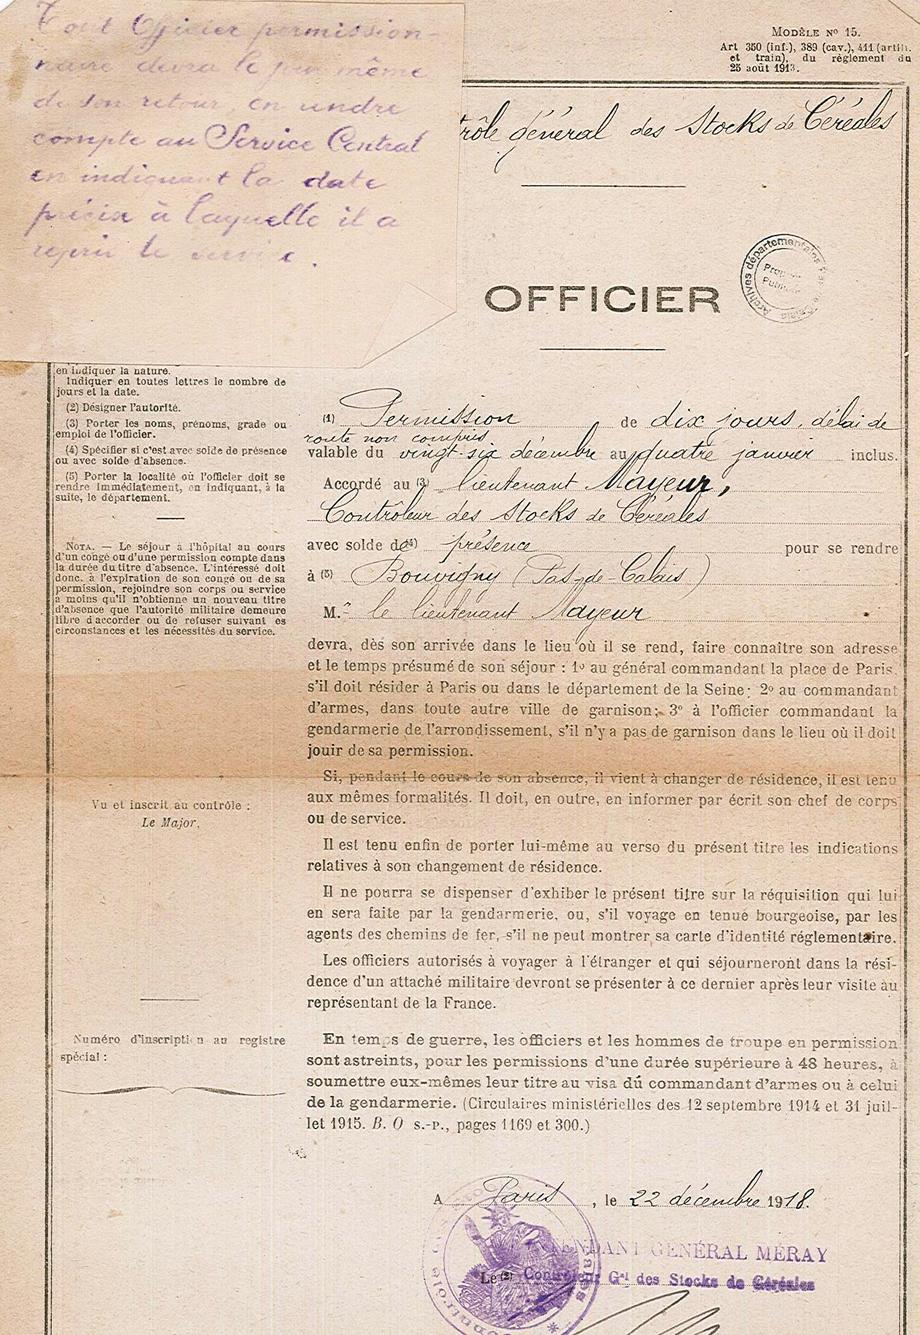 Tout Officier permission-
naire devra le jour même
de son retour, en rendre
compte au Service Central
en indiquant la date
précise à laquelle il a
repris le service.
MODÈLE N° 15.
Art 350 (inf.), 389 (cav.), 411 (artil.
et train), du règlement du
25 août 1913.
trôle général des Stocks de Céréales
OFFICIER
Archives départementales
en indiquer la nature.
Indiquer en toutes lettres le nombre de
jours et la date.
(2) Désigner l'autorité.
(3) Porter les noms, prénoms, grade ou
emploi de l'officier.
(4) Spécifier si c'est avec solde de présence
ou avec solde d'absence.
(5) Porter la localité où l'officier doit se
rendre immédiatement, en indiquant, à la
suite, le département.
NOTA. — Le séjour à l'hôpital au cours
d'un congé ou d'une permission compte dans
la durée du titre d'absence. L'intéressé doit
donc, à l'expiration de son congé ou de sa
permission, rejoindre son corps ou service
à moins qu'il n'obtienne un nouveau titre
d'absence que l'autorité militaire demeure
libre d'accorder ou de refuser suivant les
circonstances et les nécessités du service.
Vu et inscrit au contrôle :
Le Major,
Numéro d'inscription au registre
spécial :
(1) Permission de dix jours, délai de
route non compris
valable du vingt-six décembre au quatre janvier inclus.
Accordé au (3) lieutenant Mayeur,
Contrôleur des Stocks de Céréales
avec solde de (4) présence pour se rendre
à (5) Bouvigny (Pas-de-Calais)
M.r le lieutenant Mayeur
devra, dès son arrivée dans le lieu où il se rend, faire connaître son adresse
et le temps présumé de son séjour : 1o au général commandant la place de Paris,
s'il doit résider à Paris ou dans le département de la Seine; 2o au commandant
d'armes, dans toute autre ville de garnison; 3o à l'officier commandant la
gendarmerie de l'arrondissement, s'il n'y a pas de garnison dans le lieu où il doit
jouir de sa permission.
Si, pendant le cours de son absence, il vient à changer de résidence, il est tenu
aux mêmes formalités. Il doit, en outre, en informer par écrit son chef de corps
ou de service.
Il est tenu enfin de porter lui-même au verso du présent titre les indications
relatives à son changement de résidence.
Il ne pourra se dispenser d'exhiber le présent titre sur la réquisition qui lui
en sera faite par la gendarmerie, ou, s'il voyage en tenue bourgeoise, par les
agents des chemins de fer, s'il ne peut montrer sa carte d'identité réglementaire.
Les officiers autorisés à voyager à l'étranger et qui séjourneront dans la rési-
dence d'un attaché militaire devront se présenter à ce dernier après leur visite au
représentant de la France.
En temps de guerre, les officiers et les hommes de troupe en permission
sont astreints, pour les permissions d'une durée supérieure à 48 heures, à
soumettre eux-mêmes leur titre au visa du commandant d'armes ou à celui
de la gendarmerie. (Circulaires ministérielles des 12 septembre 1914 et 31 juil-
let 1915. B. O s.-p., pages 1169 et 300.)
A Paris, le 22 décembre 1918.
TENDANT GÉNÉRAL MÉRAY
Le (2) Contrôleur Gal des Stocks de Céréales